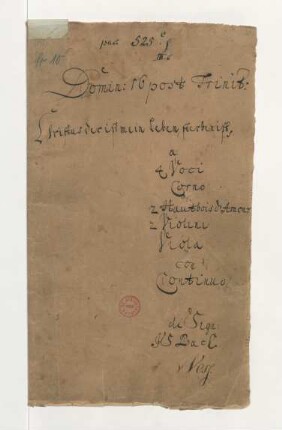 Domin: 16 post Trinit:
Christus der ist mein Leben
a
4 Voci
Corno
2 Hautbois d'Amour
2 Violini
Viola
con
Continuo
di Sigr
JS Bach